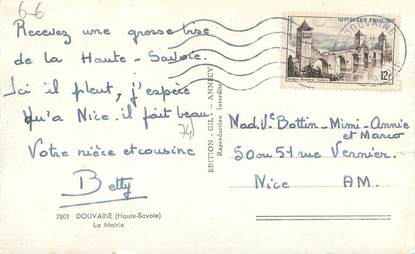 6-6
Recevez une grosse bise
de la Haute-Savoie.
Ici il pleut, j'espère
qu'a Nice il fait beau.
Votre nièce et cousine
Betty
7803 DOUVAINE (Haute-Savoie)
La Mairie
EDITION - GIL - ANNECY
Reproduction Interdite
74
REPUBLIQUE FRANÇAISE
12F
DOUVAINE
Mad. Ve Bottin-Mimi-Annie
et Marco
50 ou 51 rue Vernier.
Nice AM.